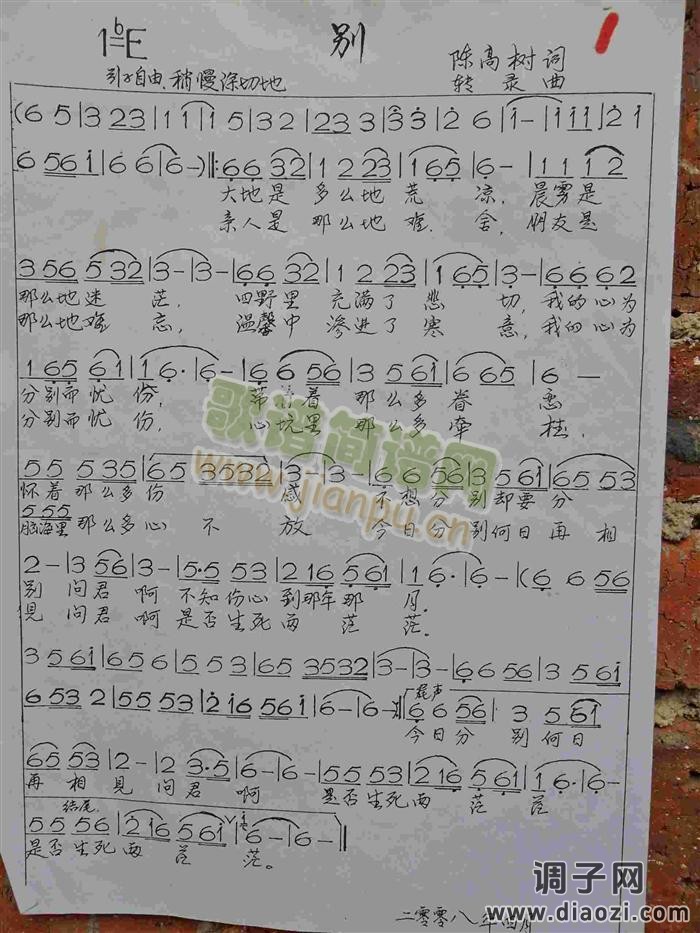 1=♭E 别
陈高树 词
转录曲
引子自由、稍慢深切地
(6 5 | 3 23 | 1 | 1 | 1 5 | 3 2 | 23 3 | 3 3 | 2 6 | 1 - | 1 - | 1 1 1 | 2 1
6 5 6 1 | 6 6 | 6 - ) ‖: 6 6 3 2 | 1 2 2 3 | 1 6 5 | 6 - | 1 1 1 2
大地是 多么地荒 凉, 晨雾是
亲人是 那么地难 舍, 朋友是
3 5 6 5 3 2 | 3 - | 3 - | 6 6 3 2 | 1 2 2 3 | 1 6 5 | 3 - | 6 6 6 2
那么地迷 茫, 四野里 充满了悲 切, 我的心为
那么地难 忘, 温馨中 渗进了寒 意, 我的心为
1 6 5 6 1 | 1 6 · | 6 - | 6 6 5 6 | 3 5 6 1 | 6 6 5 | 6 -
分别而忧 伤, 带着 那么多眷 恋
分别而忧 伤, 心坑里 那么多牵 挂.
5 5 5 3 5 | 6 5 3 5 3 2 | 3 - | 3 - | 6 6 5 6 | 3 5 6 1 | 6 5 5 3
怀着那么多伤 感 不想分 别却要分
5 5 5
脑海里那么多心 不 放 今日分别何日再相
2 - | 3 5 6 | 3 - | 5 · 5 5 3 | 2 1 6 5 6 1 | 1 6 · | 6 - | ( 6 6 5 6
别 问君 啊 不知伤心到那年那 月.
见 问君 啊 是否生死两茫 茫.
3 5 6 1 | 6 5 6 | 5 5 3 | 6 5 3 5 3 2 | 3 - | 3 - | 6 6 5 6 | 3 5 6 1
尾声
6 5 3 2 | 5 5 5 3 | 2 1 6 5 6 1 | 6 - | 6 - :‖ 6 6 5 6 | 3 5 6 1
今日分 别何日
6 5 5 3 | 2 - | 2 3 · 5 | 6 - | 6 - | 5 5 5 3 | 2 1 6 5 6 1 | 1 6 · | 6 -
再相 见 问君 啊 是否生死两 茫 茫
结尾
5 5 5 6 | 2 1 6 5 6 1 | 6 - | 6 - ‖
是否生死两 茫 茫。
二零零八年四月
歌谱简谱网
www.jianpu.cn
调子网
www.diaozi.com